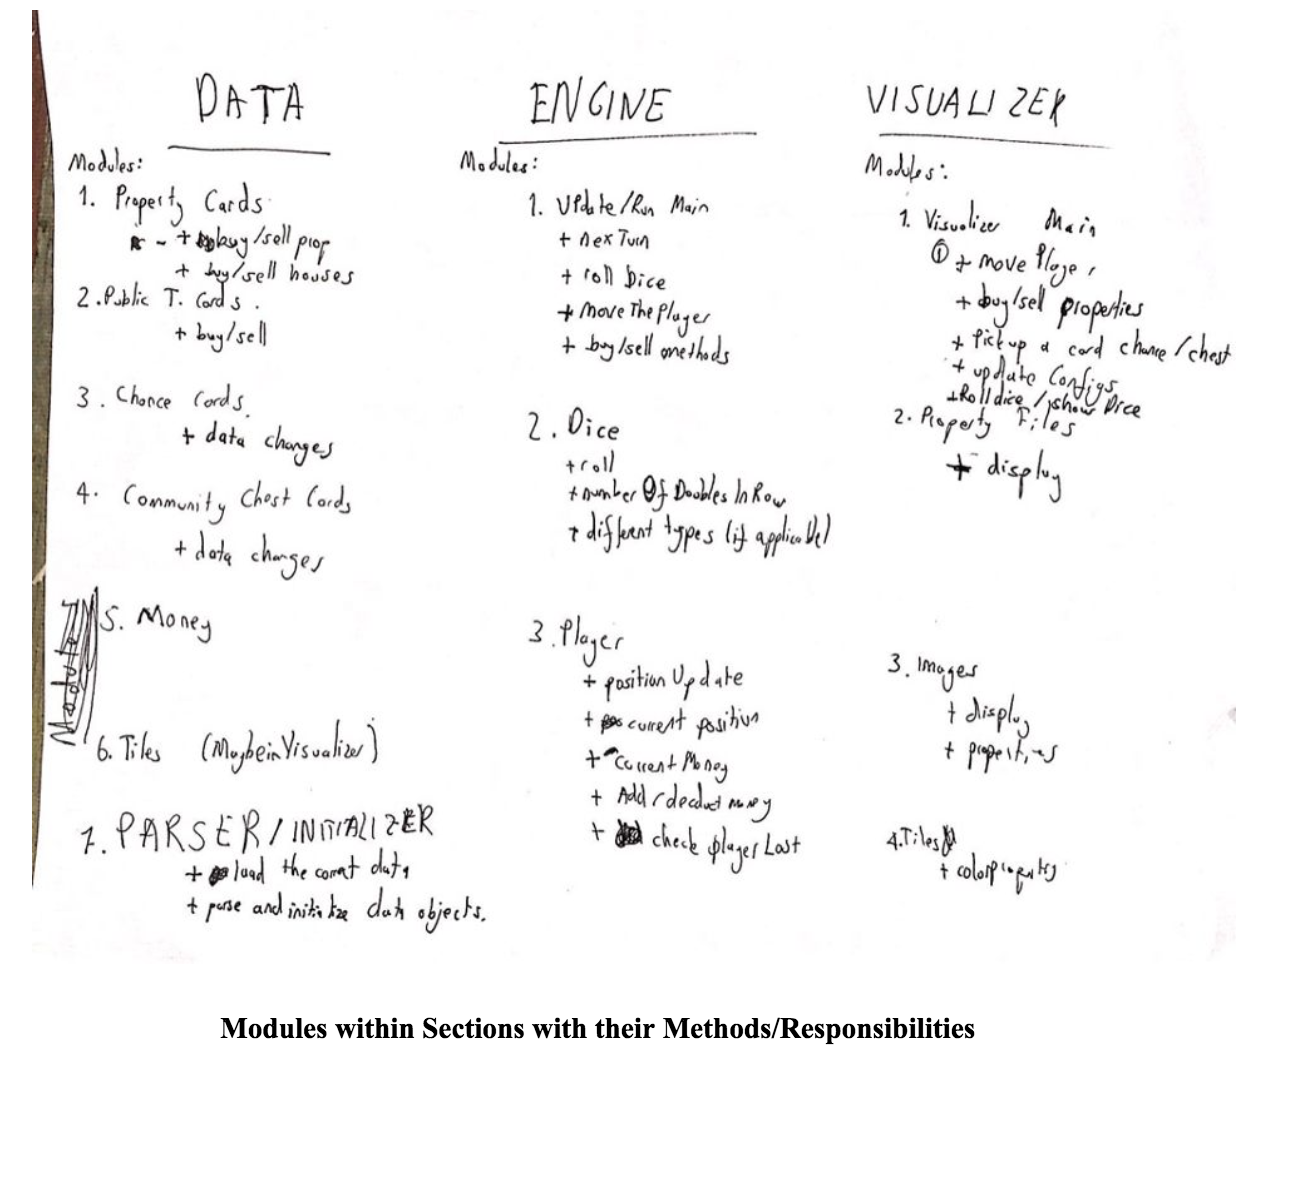 DATA
Modules:
1. Property Cards
+ buy/sell prop
+ buy/sell houses
2. Public T. Cards.
+ buy/sell
3. Chance Cards.
+ data changes
4. Community Chest Cards
+ data changes
5. Money
6. Tiles (Maybe in Visualizer)
7. PARSER/INITIALIZER
+ load the correct data
+ parse and initialize data objects.
ENGINE
Modules:
1. Update/Run Main
+ nexTurn
+ roll Dice
+ MoveThePlayer
+ buy/sell methods
2. Dice
+ roll
+ number Of Doubles In Row
+ different types (if applicable)
3. Player
+ position Update
+ current position
+ Current Money
+ Add/deduct money
+ check player Lost
VISUALIZER
Modules:
1. Visualizer Main
① + move Player
+ buy/sell properties
+ Pick up a card chance/chest
+ update Configs
+ Roll dice / show Dice
2. Property Files
+ display
3. Images
+ display
+ properties
4. Tiles
+ color
Modules within Sections with their Methods/Responsibilities